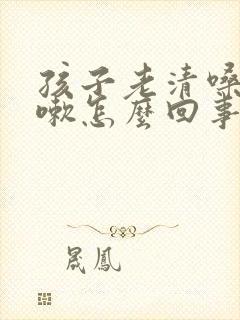 孩子老清嗓
嗽怎麼回事
晟鳳